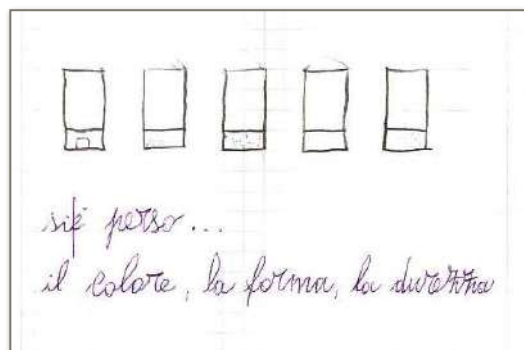 si è perso...
il colore, la forma, la durezza